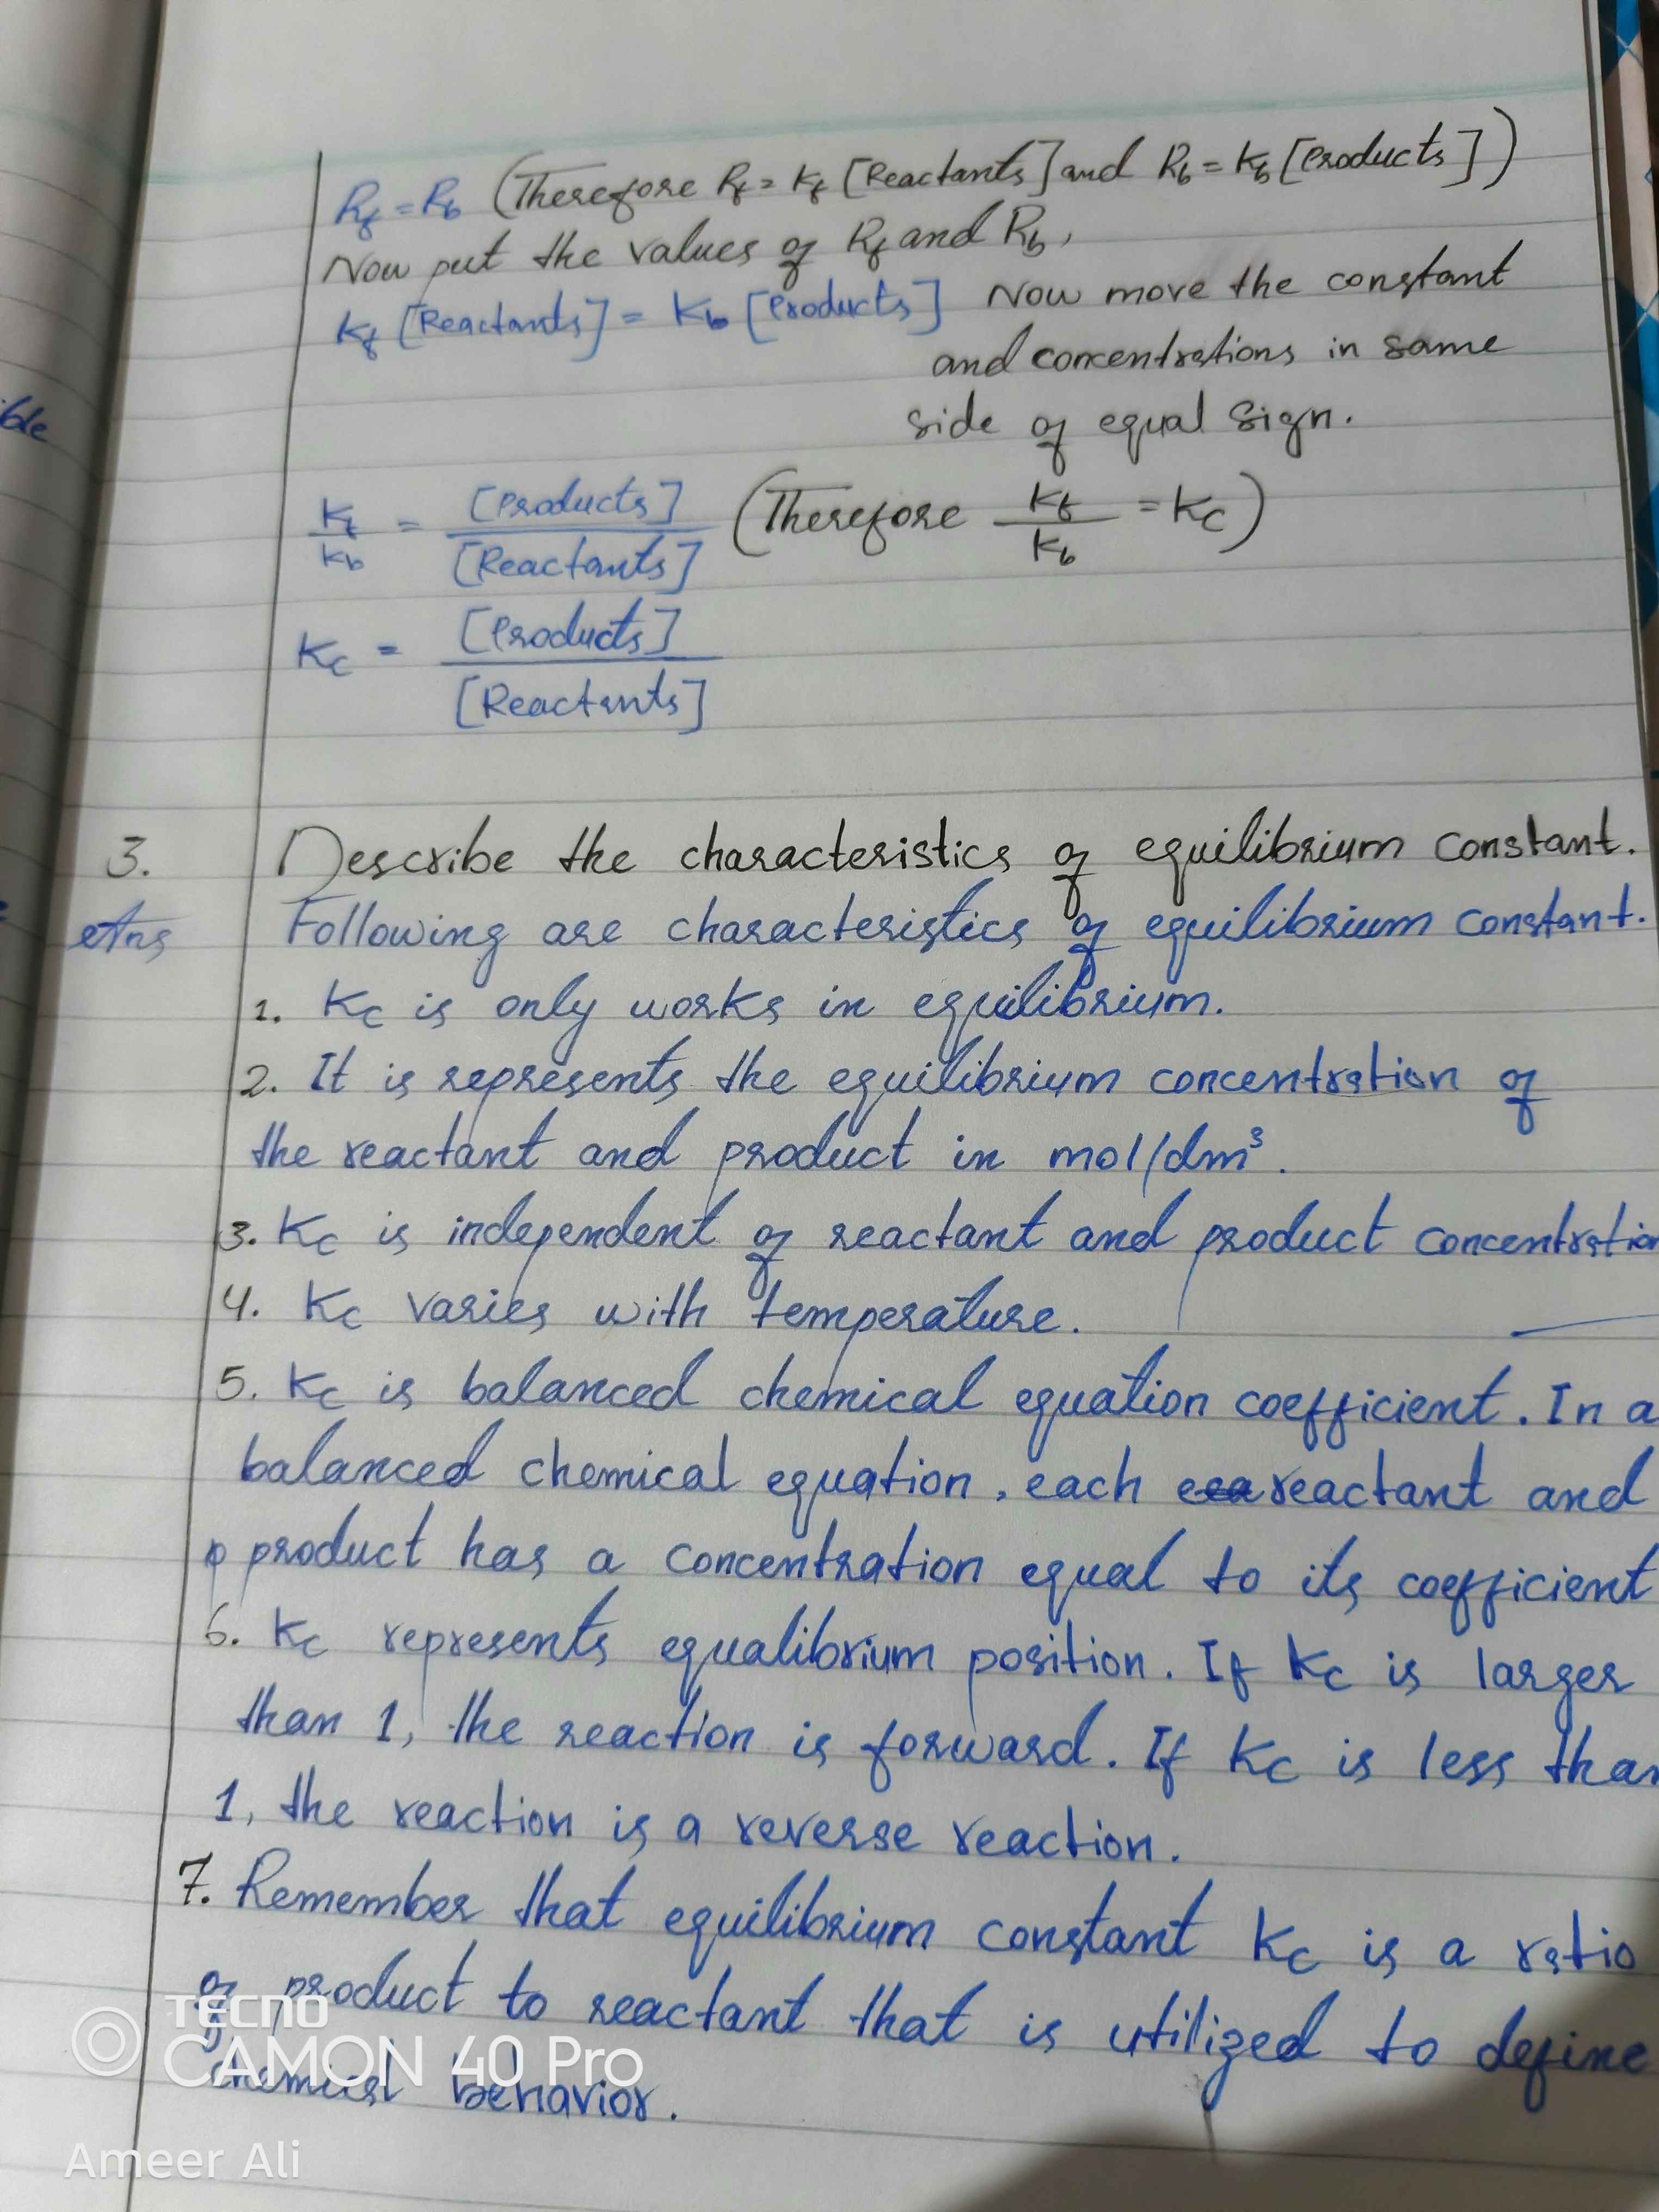 Rf = Rb (Therefore Rf = Kf [Reactants] and Rb = Kb [Products])
Now put the values of Rf and Rb,
Kf [Reactants] = Kb [Products] Now move the constant
and concentrations in same
side of equal sign.
ble
Kf/Kb = [Products]/[Reactants] (Therefore Kf/Kb = Kc)
Kc = [Products]/[Reactants]
3. Describe the characteristics of equilibrium constant.
Ans Following are characteristics of equilibrium constant.
1. Kc is only works in equilibrium.
2. It is represents the equilibrium concentration of
the reactant and product in mol/dm³.
3. Kc is independent of reactant and product concentration
4. Kc varies with temperature.
5. Kc is balanced chemical equation coefficient. In a
balanced chemical equation, each reactant and
product has a concentration equal to its coefficient
6. Kc represents equalibrium position. If Kc is larger
than 1, the reaction is forward. If Kc is less than
1, the reaction is a reverse reaction.
7. Remember that equilibrium constant Kc is a ratio
of product to reactant that is utilized to define
chemical behavior.
TECNO
CAMON 40 Pro
Ameer Ali